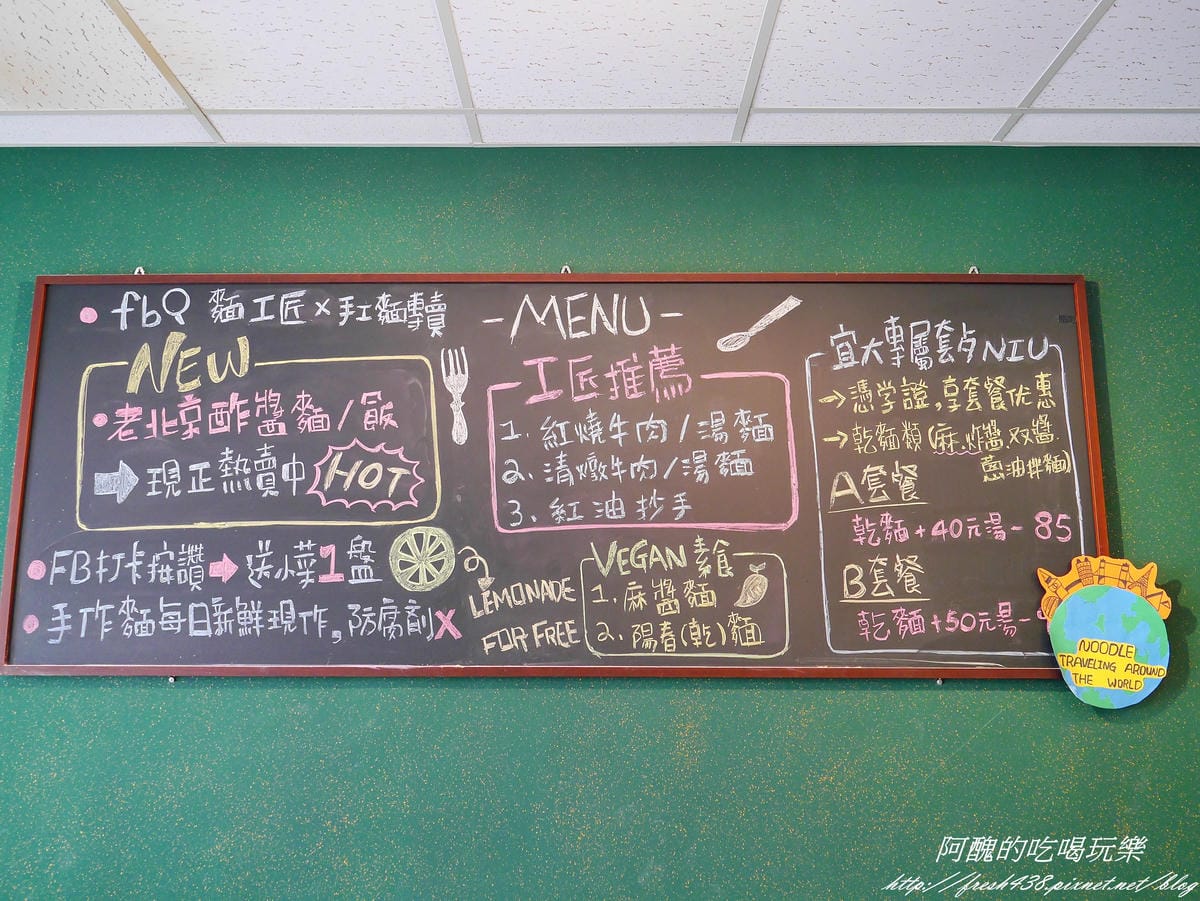 fbQ 麵工匠×手工麵專賣
NEW
老北京酢醬麵/飯
現正熱賣中 HOT
FB打卡按讚 送小菜1盤
手作麵每日新鮮現作,防腐劑X
-MENU-
工匠推薦
1. 紅燒牛肉/湯麵
2. 清燉牛肉/湯麵
3. 紅油抄手
LEMONADE
FOR FREE
VEGAN 素食
1. 麻醬麵
2. 陽春(乾)麵
宜大專屬套餐 NIU
憑學證,享套餐优惠
乾麵類(麻.炸醬.双醬.
蔥油拌麵)
A套餐
乾麵+40元湯-85
B套餐
乾麵+50元湯-
NOODLE
TRAVELING AROUND
THE WORLD
阿醜的吃喝玩樂
http://fresh438.pixnet.net/blog